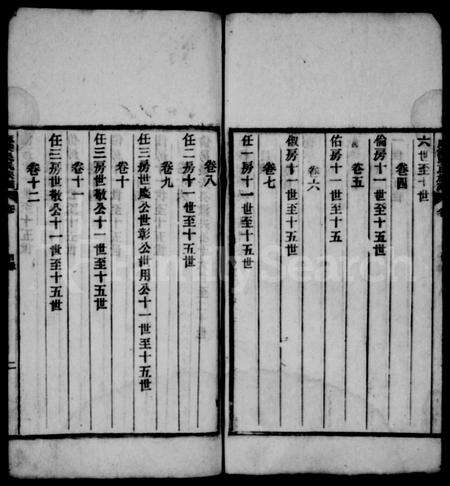 六世至十世
卷四
倫房十一世至十五世
卷五
佑房十一世至十五
卷六
俶房十一世至十五世
卷七
任一房十一世至十五世
卷八
任二房十一世至十五世
卷九
任三房世慶公世彰公世用公十一世至十五世
卷十
任三房世敬公十一世至十五世
卷十一
任三房世敬公十一世至十五世
卷十二